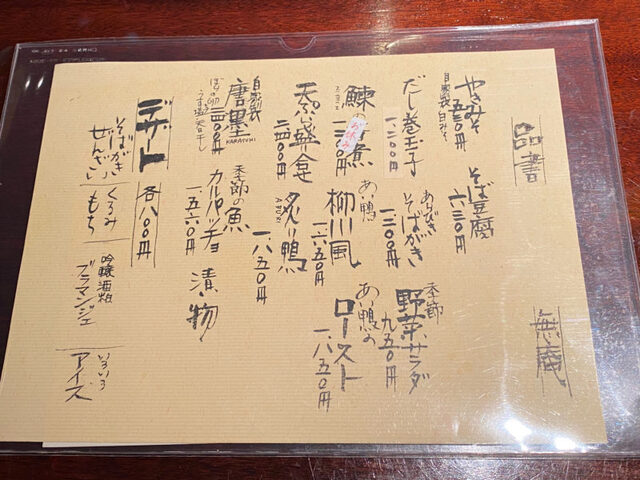 品書
無庵
やきみそ
自家製 白みそ
そば豆腐
六三〇円
だし巻玉子
一、二〇〇円
あらびき
そばがき
一、二〇〇円
季節
野菜サラダ
九五〇円
鰊の
お休み
煮
あい鴨
柳川風
一、六五〇円
あい鴨の
ロースト
一、八五〇円
天ぷら盛り合
炙り鴨
ABURI
一、八五〇円
自家製
唐墨
KARASUMI
季節の魚
カルパッチョ
一、五六〇円
漬け物
デザート
各八〇〇円
そばがき
ぜんざい
くるみ
もち
吟醸酒粕
ブラマンジェ
いろいろ
アイス